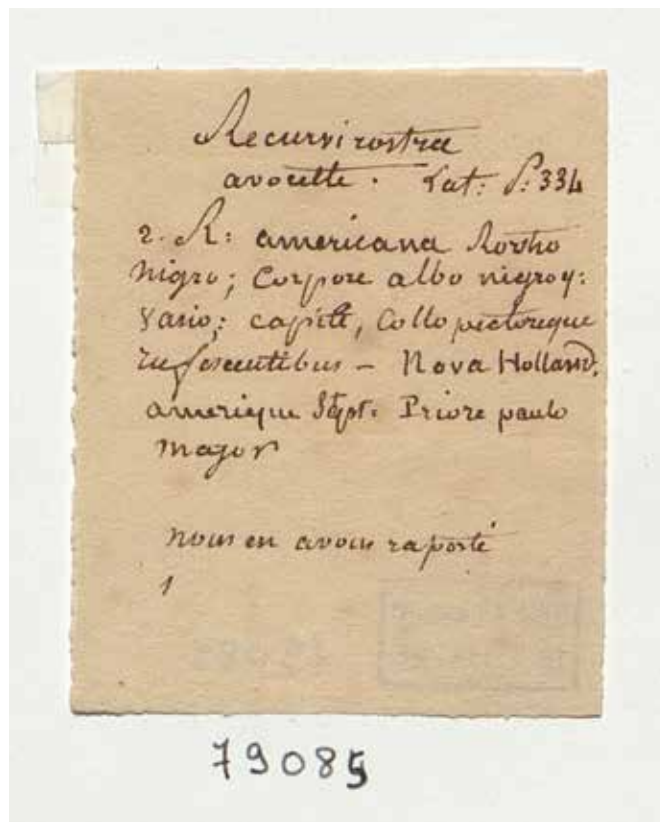 Recurvirostra
avocette . Lat: P: 334
2. R: americana Rostro
nigro; Corpore albo nigroq:
Vario; capite, Collo pectoreque
rufescentibus - Nova Holland.
amerique Sept: Priore paulo
major
nous en avons raporté
1
79085